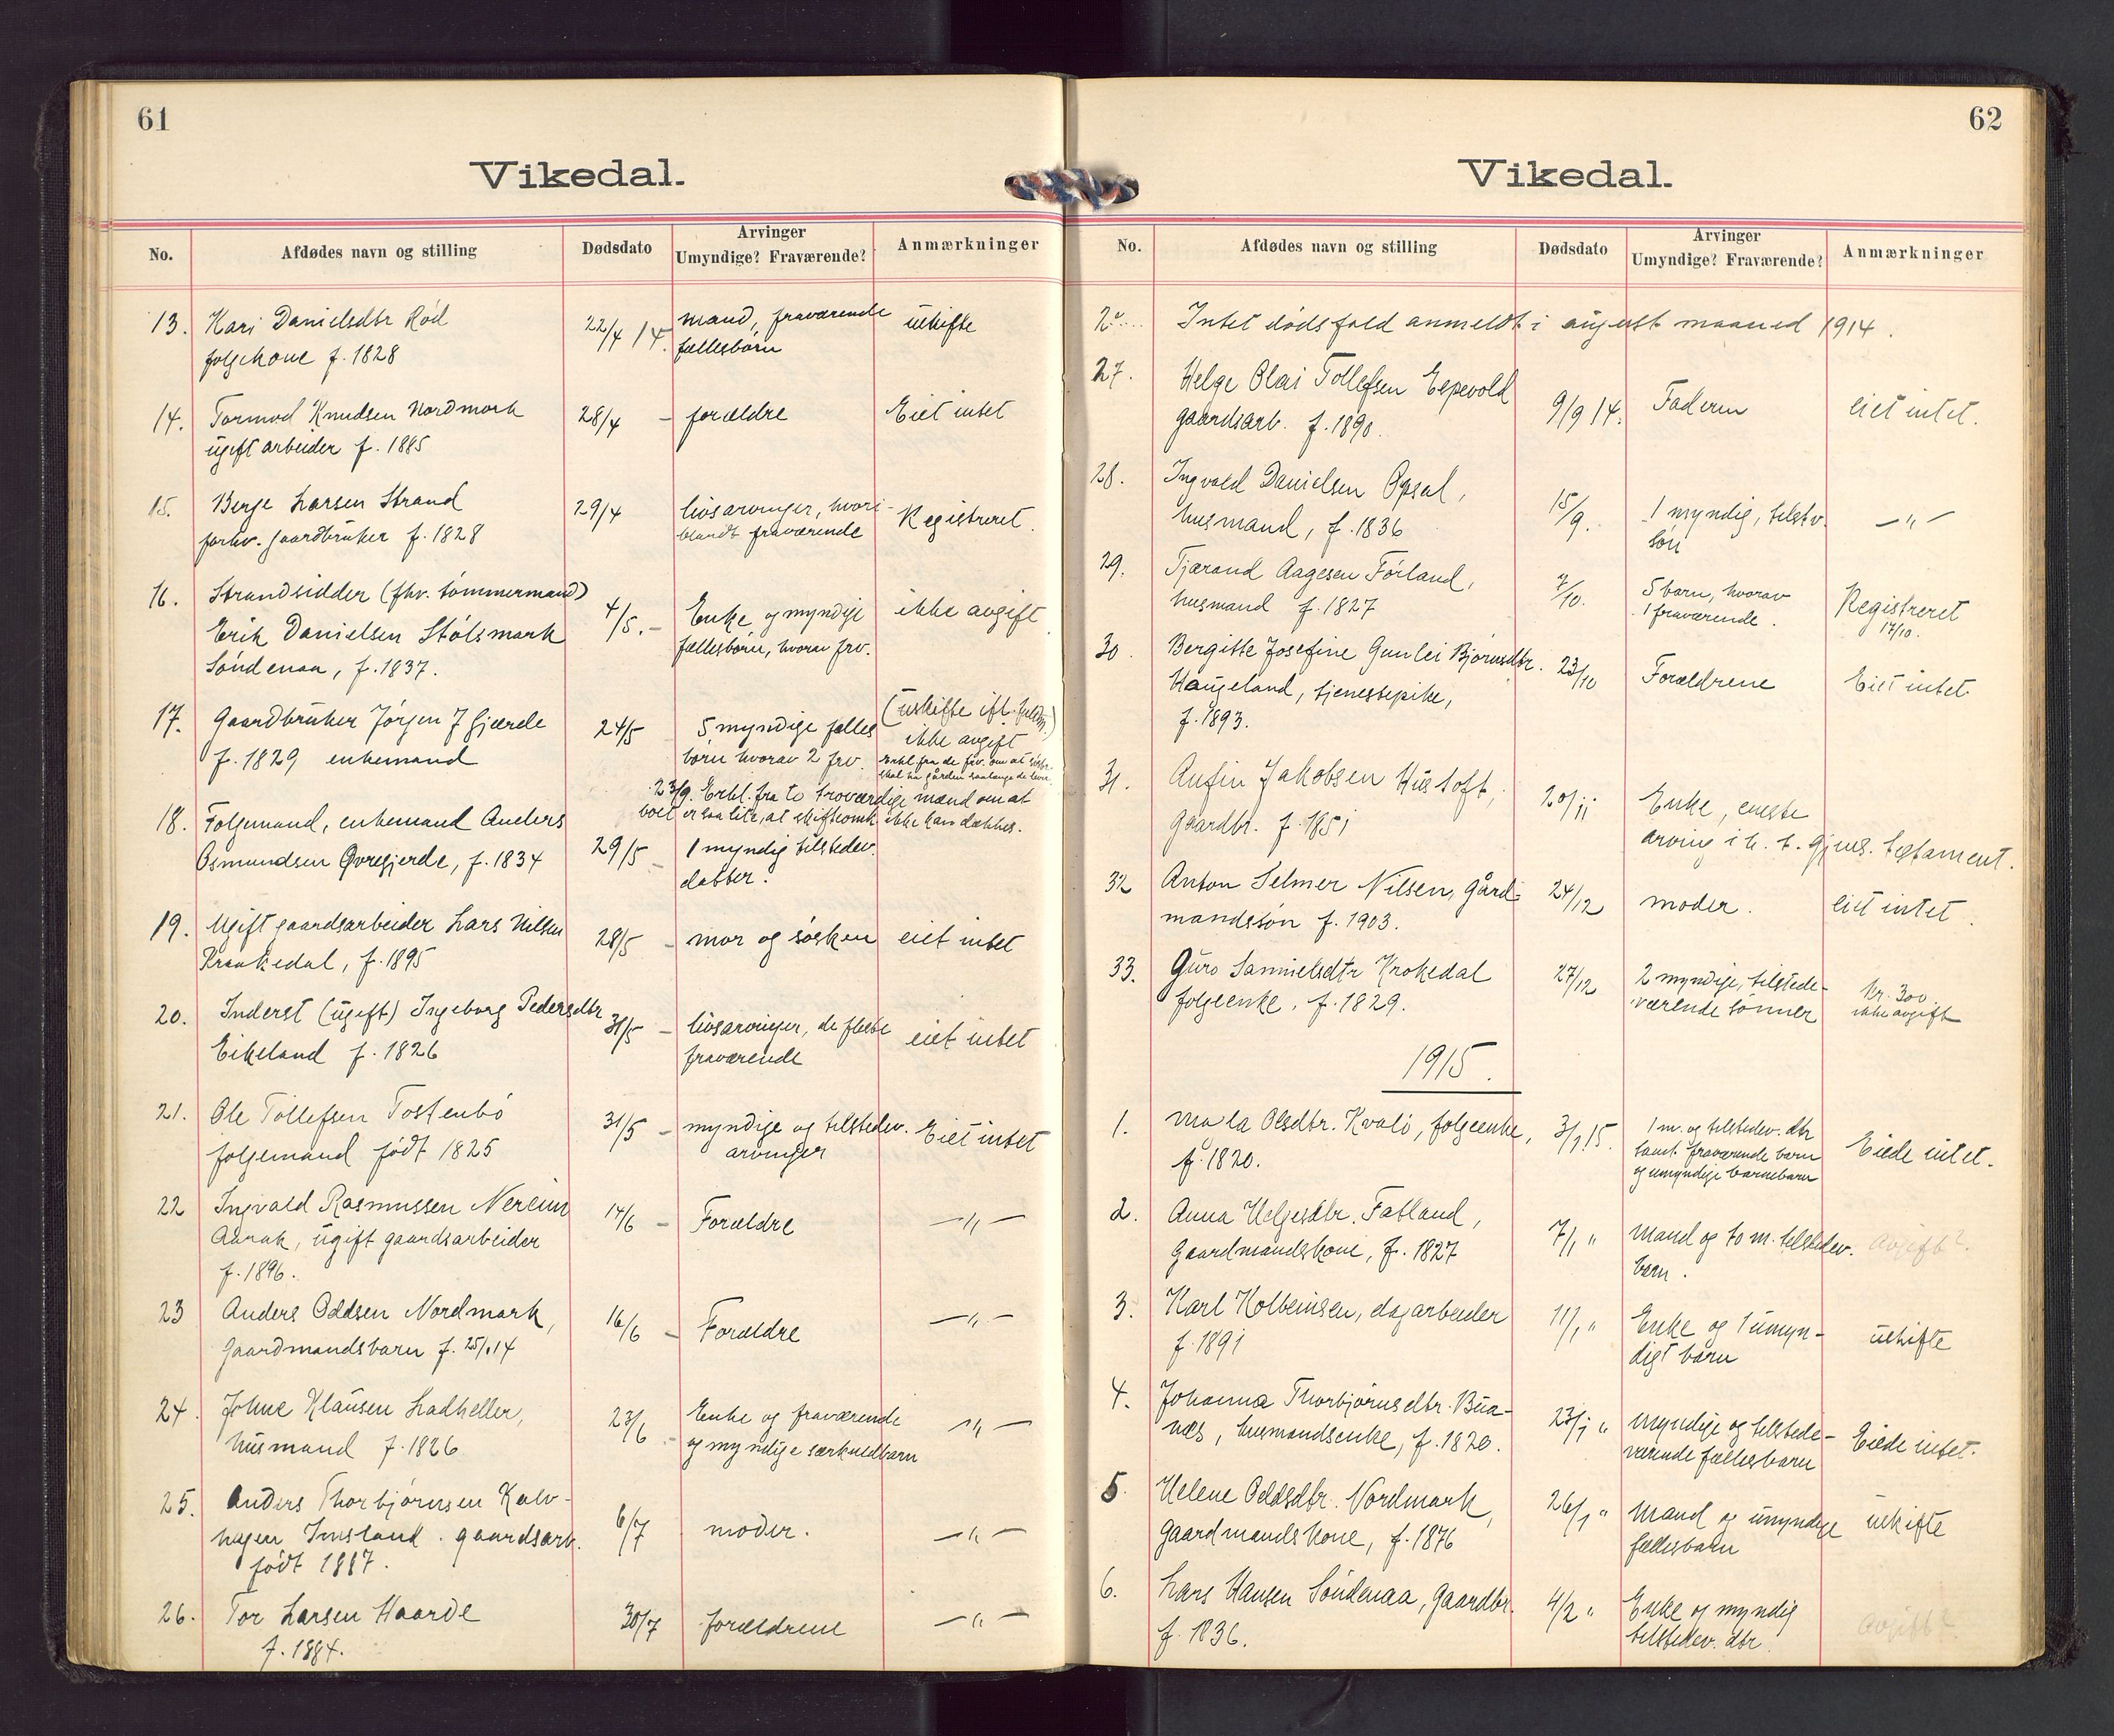 61
Vikedal.
No. Afdødes navn og stilling Dødsdato Arvinger Umyndige? Fraværende? Anmærkninger
13. Kari Danielsdtr Rød 22/4 14. mand, fraværende uskifte
folgekone f. 1828 fællesbørn
14. Tormod Knudsen Nordmork 28/4 – forældre Eiet intet
ugift arbeider f. 1885
15. Berge Larsen Strand 29/4 livsarvinger, hvori- Registreret.
forhv. gaardbruker f. 1828 blandt fraværende
16. Strandsidder (fhv. tømmermand)
Erik Danielsen Stølsmark 4/5. – Enke og myndige ikke avgift
Søndenaa, f. 1837. fællesbørn, hvorav frv.
17. Gaardbruker Jørgen J Gjærde 24/5 5 myndige fælles (uskifte ifl.
f. 1829 enkemand børn hvorav 2 frv. ikke avgift
Erkl. fra de frv. om at
skal ha gården saalænge de lever
23/9. Erkl. fra to troværdige mænd om at
boet er saa lite, at skifteomk ikke kan dækkes.
18. Folgemand, enkemand Anders
Osmundsen Øvregjerde, f. 1834 29/5 – 1 myndig tilstedev.
datter.
19. Ugift gaardsarbeider Lars Nilsen 28/5 – mor og søsken eiet intet
Kraakedal, f. 1895
20. Inderst (ugift) Ingeborg Pedersdtr 31/5 – livsarvinger, de fleste eiet intet
Eikeland f. 1826 fraværende
21. Ole Tollefsen Tostenbø 31/5 – myndige og tilstedev. Eiet intet
folgemand født 1825 arvinger
22 Ingvald Rasmussen Nereim 14/6 – Forældre —"—
ugift gaardsarbeider
f. 1896.
23 Anders Oddsen Nordmark, 16/6 – Forældre —"—
gaardmandsbarn f. 25/1 14
24. Johne Klausen Ladheller, 23/6 – Enke og fraværende —"—
husmand f. 1826 og myndige særkuldbarn
25. Anders Thorbjørnsen Kalv-
hagen Imsland. gaardsarb. 6/7 moder. —"—
født 1887.
26. Tor Larsen Haarde 30/7 forældrene —"—
f. 1884.
62
Vikedal.
No. Afdødes navn og stilling Dødsdato Arvinger Umyndige? Fraværende? Anmærkninger
Intet dødsfald anmeldt i august maaned 1914.
27. Helge Olai Tollefsen Espevold 9/9 14. Faderen eiet intet.
gaardsarb. f. 1890.
28. Ingvald Danielsen Opsal, 15/9. 1 myndig, tilstv. —"—
husmand, f. 1836 søn
29. Tjærand Aagesen Førland, 7/10. 5 barn, hvorav Registreret
husmand f. 1827 1 fraværende. 17/10.
30. Bergitte Josefine Gunlei Bjørnsdtr. 23/10 Forældrene Eiet intet.
Haugeland, tjenestepike,
f. 1893.
31. Anfin Jakobsen Hustoft, 20/11 Enke, eneste
gaardbr. f. 1851 arving i h. t. gjens. testament.
32 Anton Selmer Nilsen, gård- 24/12 moder. eiet intet.
mandssøn f. 1903.
33. Guro Samuelsdtr Krokedal 27/12 2 myndige, tilstede- kr. 300.
folgeenke. f. 1829. værende sønner ikke avgift
1915.
1. Olsdtr. Kvalø, folgeenke, 3/1 15. 1 m. og tilstedev. dtr Eiede intet.
f. 1820. samt fraværende børn
og umyndige barnebarn
2. Anna Helgesdtr. Fatland, 7/1 " Mand og to m. tilstedev. avgift?
Gaardmandskone, f. 1827 børn.
3. Karl Kolbeinsen, dagarbeider 11/1 " Enke og 1 umyn- uskifte
f. 1891 digt barn
4. Johanna Thorbjørnsdtr. Bua- 23/1 " Myndige og tilstede- Eiede intet.
næs, husmandsenke, f. 1820. værende fællesbarn
5. Helene Oddsdtr. Nordmark, 26/1 " Mand og umyndige uskifte
gaardmandskone, f. 1876 fællesbarn
6. Lars Hansen Søndenaa, Gaardbr. 4/2 " Enke og myndig avgift?
f. 1836. tilstedev. dtr.